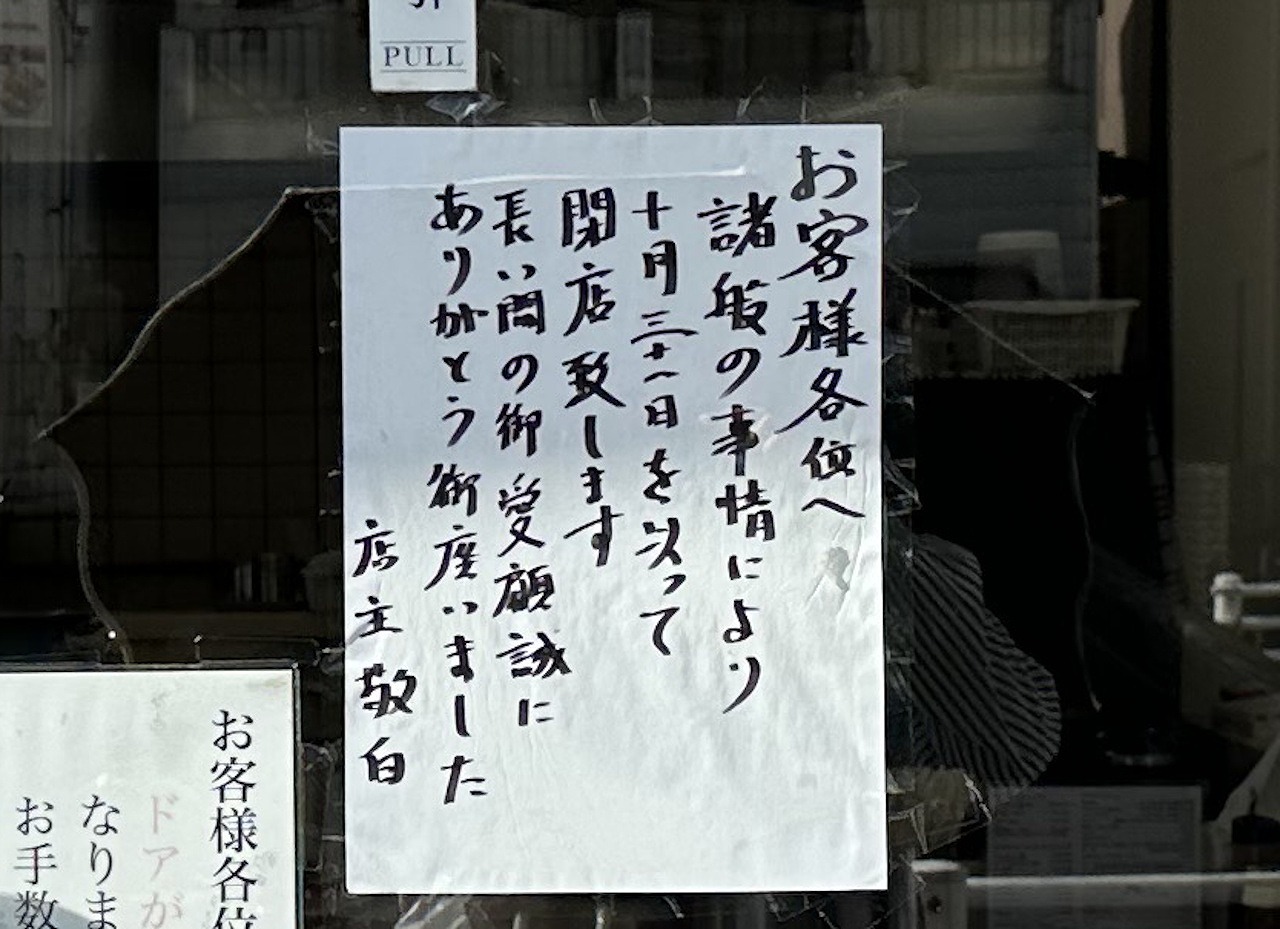 PULL
お客様各位へ
諸般の事情により
十月三十一日を以って
閉店致します
長い間の御愛顧誠に
ありがとう御座いました
店主敬白
お客様各位
ドアが
なりま
お手数